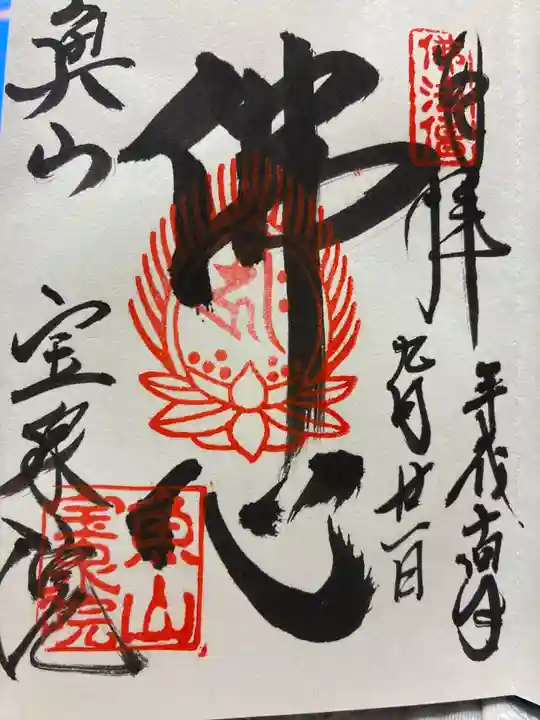 佛法僧
奉拝
平成
年
九月廿一日
佛心
魚山
宝泉院
魚山
宝泉院